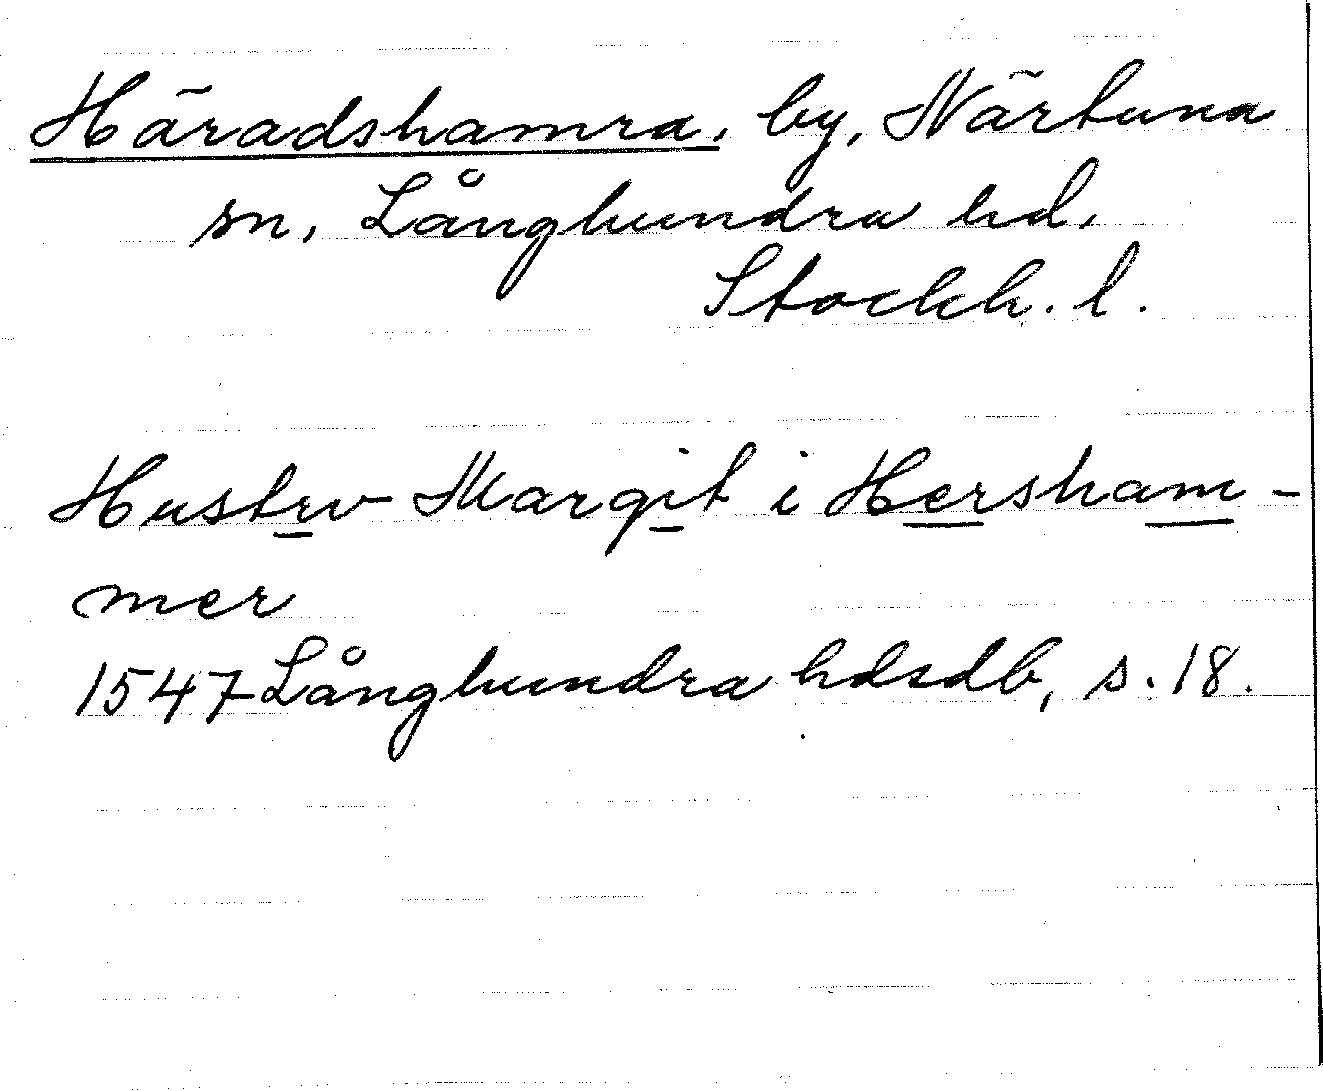 Häradshamra, by, Närtuna
sn, Långhundra hd,
Stockh. l.
Hustrv Margit i Hersham-
mer
1547 Långhundra hdsdb, s. 18.